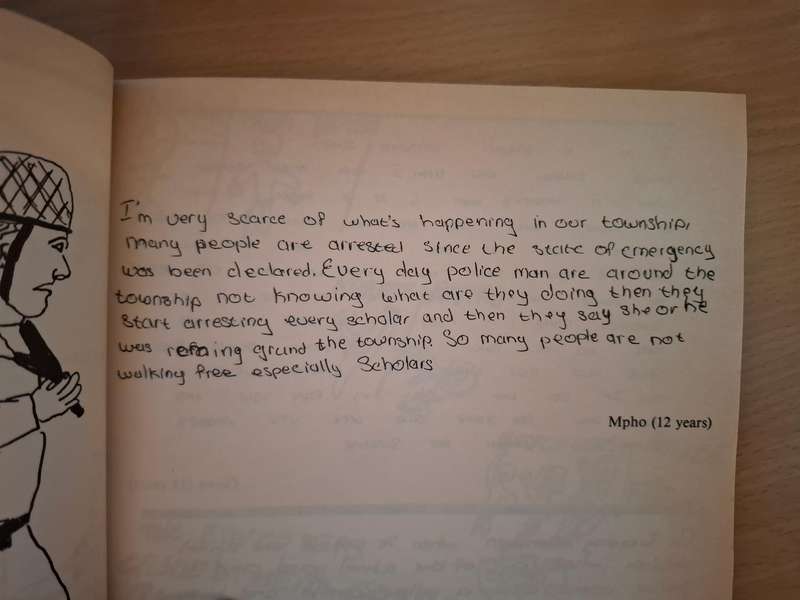 I'm very scarce of what's happening in our township,
many people are arrested since the state of emergency
was been declared. Every day police man are around the
township not knowing what are they doing then they
start arresting every scholar and then they say she or he
was roming grund the township. So many people are not
walking free especially Scholars
Mpho (12 years)